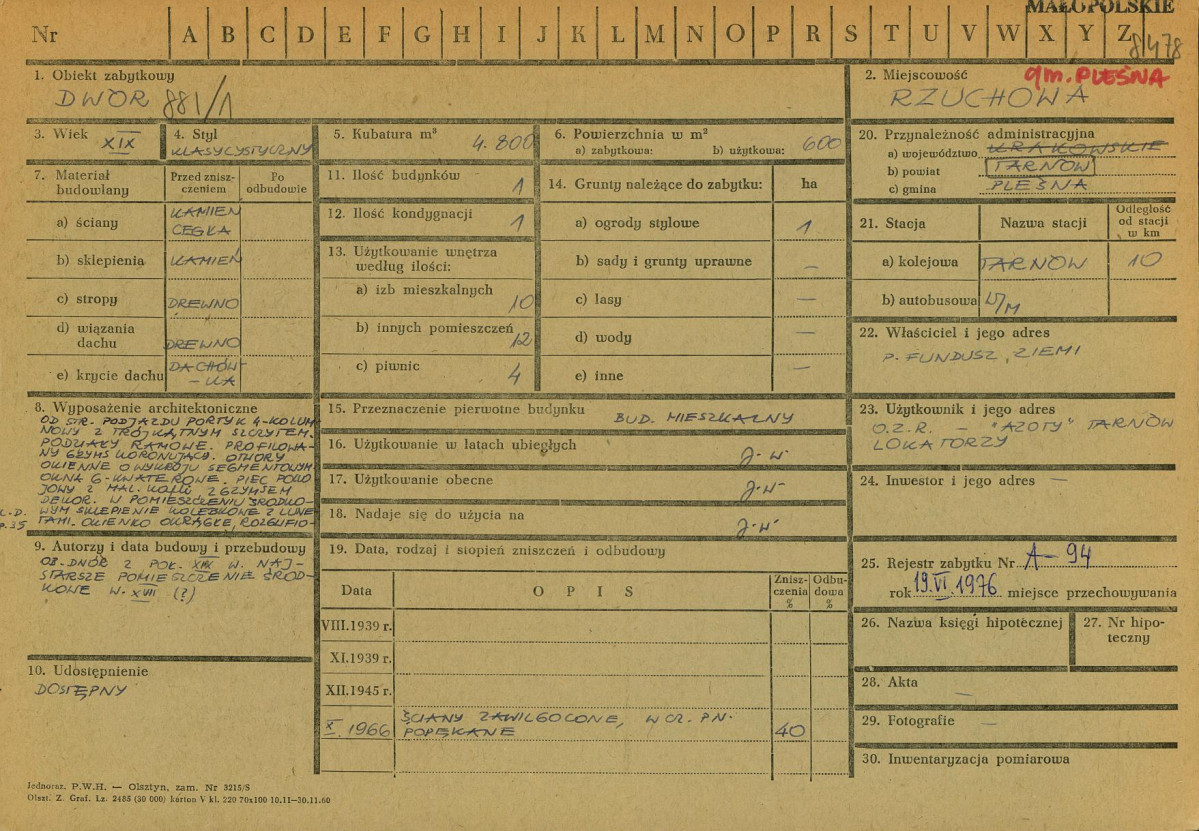 MAŁOPOLSKIE
Nr A B C D E F G H I J K L M N O P R S T U V W X Y Z
8478
1. Obiekt zabytkowy
DWÓR 881/1
2. Miejscowość gm. PLEŚNA
RZUCHOWA
3. Wiek XIX
4. Styl
KLASYCYSTYCZNY
5. Kubatura m³
4.800
6. Powierzchnia w m²
a) zabytkowa: b) użytkowa: 600
20. Przynależność administracyjna
a) województwo KRAKOWSKIE
b) powiat TARNÓW
c) gmina PLEŚNA
7. Materiał budowlany
Przed znisz-
czeniem
Po
odbudowie
a) ściany KAMIEŃ
CEGŁA
b) sklepienia KAMIEŃ
c) stropy DREWNO
d) wiązania
dachu DREWNO
e) krycie dachu DACHÓW-
- KA
11. Ilość budynków 1
12. Ilość kondygnacji 1
13. Użytkowanie wnętrza
według ilości:
a) izb mieszkalnych 10
b) innych pomieszczeń 12
c) piwnic 4
14. Grunty należące do zabytku: ha
a) ogrody stylowe 1
b) sady i grunty uprawne —
c) lasy —
d) wody —
e) inne —
21. Stacja Nazwa stacji Odległość
od stacji
w km
a) kolejowa TARNÓW 10
b) autobusowa W/M
22. Właściciel i jego adres
P. FUNDUSZ ZIEMI
8. Wyposażenie architektoniczne
OD STR. PODJAZDU PORTYK 4-KOLUM
NOWY Z TRÓJKĄTNYM SZCZYTEM.
PODZIAŁY RAMOWE. PROFILOWA-
NY GZYMS KORONUJĄCY. OTWORY
OKIENNE O WYKROJU SEGMENTOWYM
OKNA 6-KWATEROWE. PIEC POKO
JOWY Z MAL. KAFLI Z GZYMSEM
DEKOR. W POMIESZCZENIU ŚRODKO-
WYM SKLEPIENIE KOLEBKOWE Z LUNE
TAMI. OKIENKO OKRĄGŁE, ROZGLIFIO-
15. Przeznaczenie pierwotne budynku BUD. MIESZKALNY
16. Użytkowanie w latach ubiegłych J.W.
17. Użytkowanie obecne J.W.
18. Nadaje się do użycia na J.W.
23. Użytkownik i jego adres
O.Z.R. - "AZOTY" TARNÓW
LOKATORZY
24. Inwestor i jego adres —
9. Autorzy i data budowy i przebudowy
OB. DWÓR Z POŁ. XIX W. NAJ-
STARSZE POMIESZCZENIE ŚROD-
KOWE W. XVII (?)
10. Udostępnienie
DOSTĘPNY
19. Data, rodzaj i stopień zniszczeń i odbudowy
Data OPIS Znisz-
czenia
% Odbu-
dowa
%
VIII.1939 r.
XI.1939 r.
XII.1945 r.
X. 1966 ŚCIANY ZAWILGOCONE, W CZ. PN.
POPĘKANE 40
25. Rejestr zabytku Nr A-94
rok 19.VI.1976 miejsce przechowywania
26. Nazwa księgi hipotecznej
27. Nr hipo-
teczny
28. Akta —
29. Fotografie —
30. Inwentaryzacja pomiarowa
Jednoraz. P.W.H. — Olsztyn, zam. Nr 3215/S
Olszt. Z. Graf. Lz. 2485 (30 000) karton V kl. 220 70x100 10.11—30.11.60